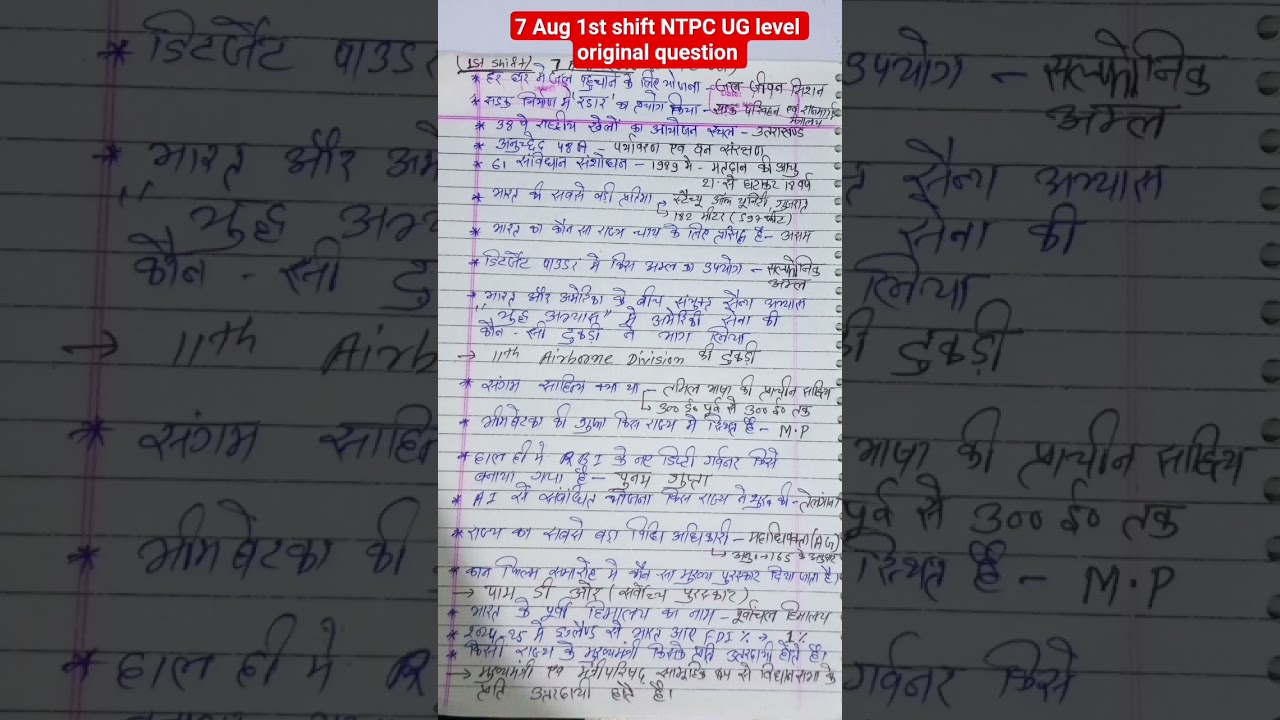 7 Aug 1st shift NTPC UG level
original question
(1st shift) 7
* हर घर में जल पहुंचाने के लिए योजना - जल जीवन मिशन
* सड़क निर्माण में 'रडार' का प्रयोग किया - सड़क परिवहन एवं राजमार्ग
मंत्रालय
* 38 वें राष्ट्रीय खेलों का आयोजन स्थल - उत्तराखण्ड
* अनुच्छेद 48A - पर्यावरण एवं वन संरक्षण
* 61 संविधान संशोधन - 1989 में - मतदान की आयु
21 से हटाकर 18 वर्ष
* भारत की सबसे बड़ी प्रतिमा स्टैच्यू ऑफ यूनिटी, गुजरात
182 मीटर (597 फीट)
* भारत का कौन सा राज्य चाय के लिए प्रसिद्ध है - असम
* डिटर्जेंट पाउडर में किस अम्ल का उपयोग - सल्फोनिक
अम्ल
→ भारत और अमेरिका के बीच संयुक्त सैन्य अभ्यास
"युद्ध अभ्यास" में अमेरिकी सेना की
कौन - सी टुकड़ी ने भाग लिया
→ 11th Airborne Division की टुकड़ी
* संगम साहित्य क्या था - तमिल भाषा की प्राचीन साहित्य
300 ई० पूर्व से 300 ई० तक
* भीमबेटका की गुफा किस राज्य में स्थित है - M.P
* हाल ही में RBI के नए डिप्टी गर्वनर किसे
बनाया गया है - पुनम गुप्ता
* AI से संबंधित योजना किस राज्य ने शुरू की - तेलंगाना
* राज्य का सबसे बड़ा विधि अधिकारी - महाधिवक्ता (AG)
अनु० 165 के अनुसार
* कान फिल्म समारोह में कौन सा मुख्य पुरस्कार दिया जाता है।
→ पाम डी ओर (सर्वोच्च पुरस्कार)
* भारत के पूर्वी हिमालय का नाम - पूर्वांचल हिमालय
* 2024-25 में इंग्लैण्ड से भारत आए FDI % → 1%
* किसी राज्य के मुख्यमंत्री किसके प्रति उत्तरदायी होते हैं।
→ मुख्यमंत्री एवं मंत्रीपरिषद् सामूहिक रूप से विधानसभा के
प्रति उत्तरदायी होते हैं।